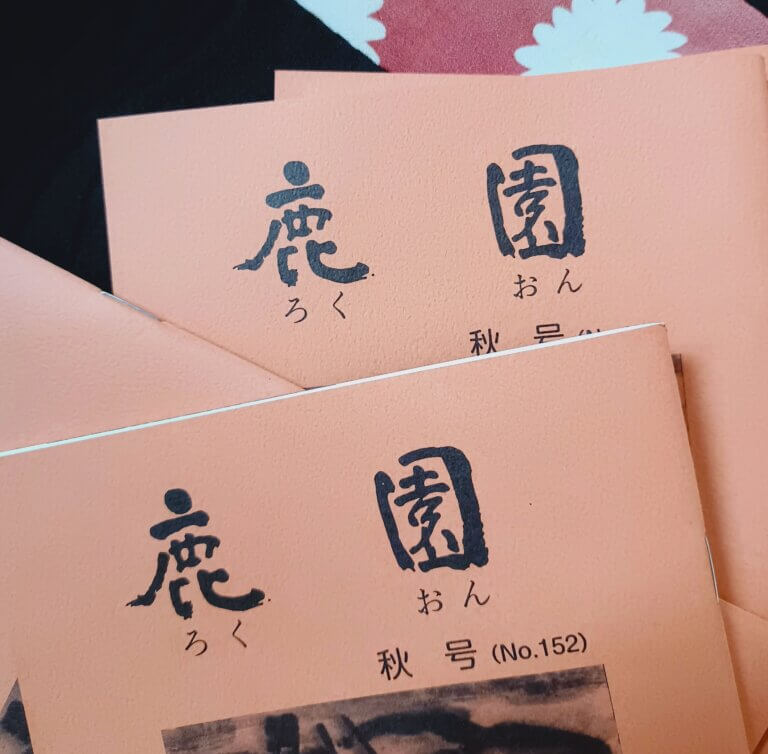 鹿 園
ろく おん
秋 号 (N
鹿 園
ろく おん
秋 号 (No.152)